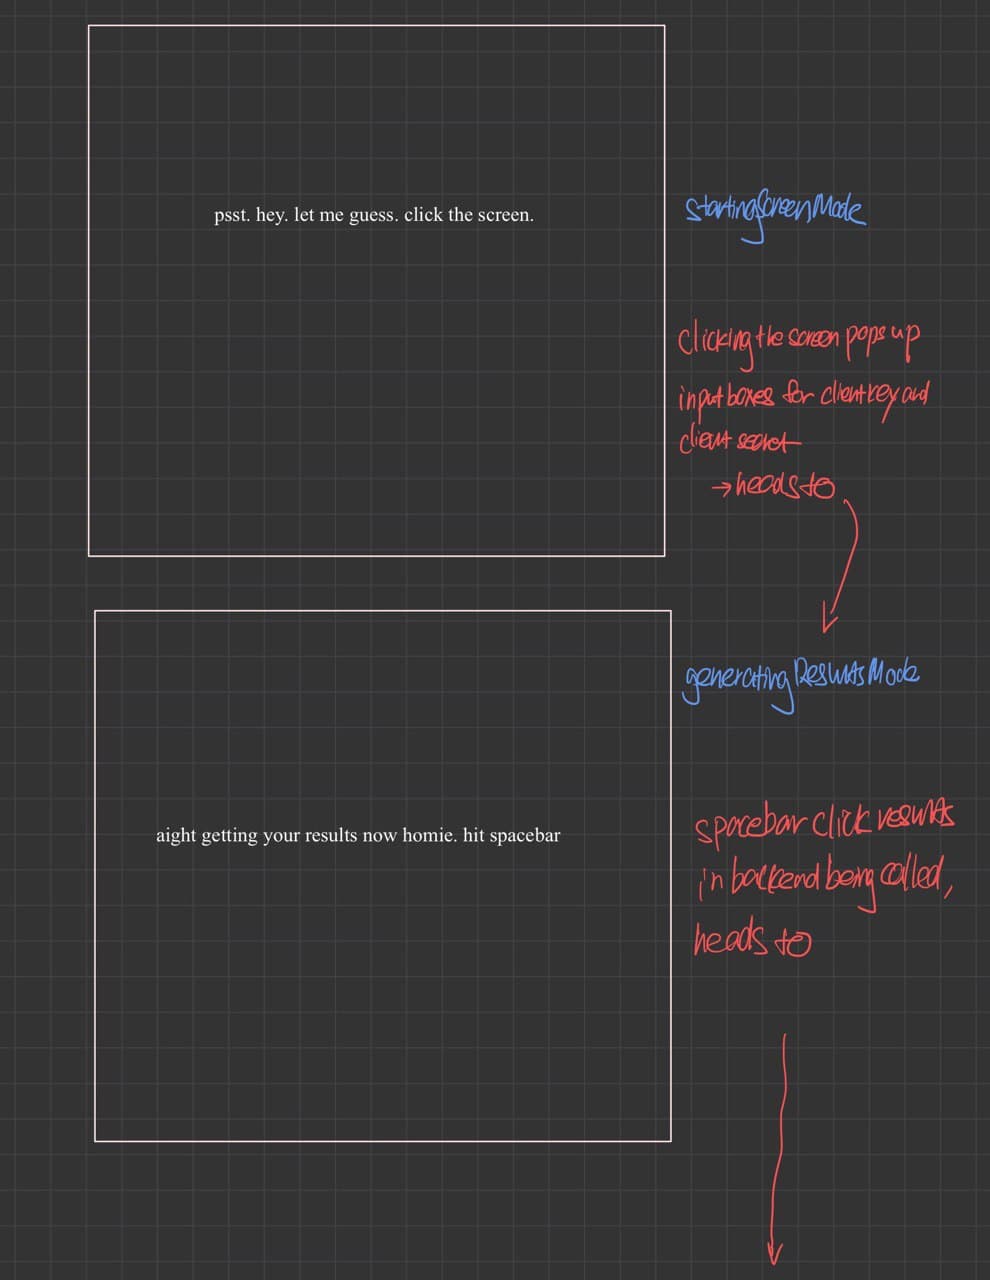 psst. hey. let me guess. click the screen.
startingScreenMode
clicking the screen pops up
input boxes for client key and
client secret
→ heads to
generatingResultsMode
aight getting your results now homie. hit spacebar
spacebar click results
in backend being called,
heads to